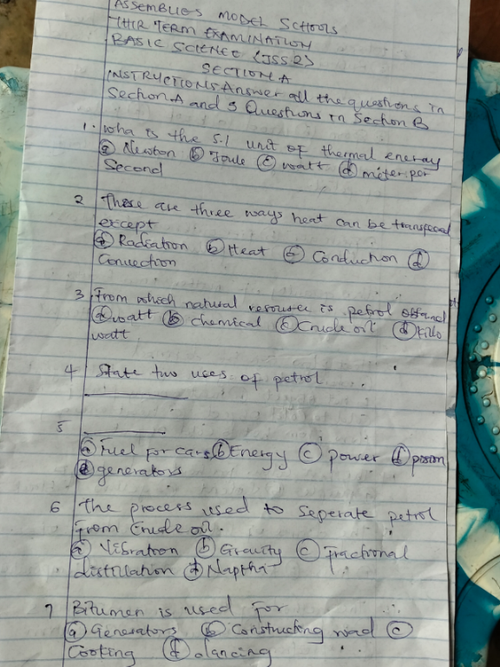 ASSEMBLIES MODEL SCHOOLS
THIR TERM EXAMINATION
BASIC SCIENCE (JSS2)
SECTION A
INSTRUCTIONS: Answer all the questions in
Section A and 3 Questions in Section B
1. Wha is the S.I unit of thermal energy
(a) Newton (b) Joule (c) watt (d) miter per
Second
2 These are three ways heat can be transfered
except
(a) Radiation (b) Heat (c) Conduction (d)
Convection
3 From which natural resource is petrol obtained
(a) watt (b) chemical (c) Crude oil (d) Killo
watt
4 State two uses of petrol
5
(a) Fuel for cars (b) Energy (c) power (d)
generators
6 The process used to seperate petrol
from Crude oil.
(a) Vibration (b) Gravity (c) fractional
distillation (d) Naptha
7 Bitumen is used for
(a) Generators (b) Constructing road (c)
Cooking (d) dancing